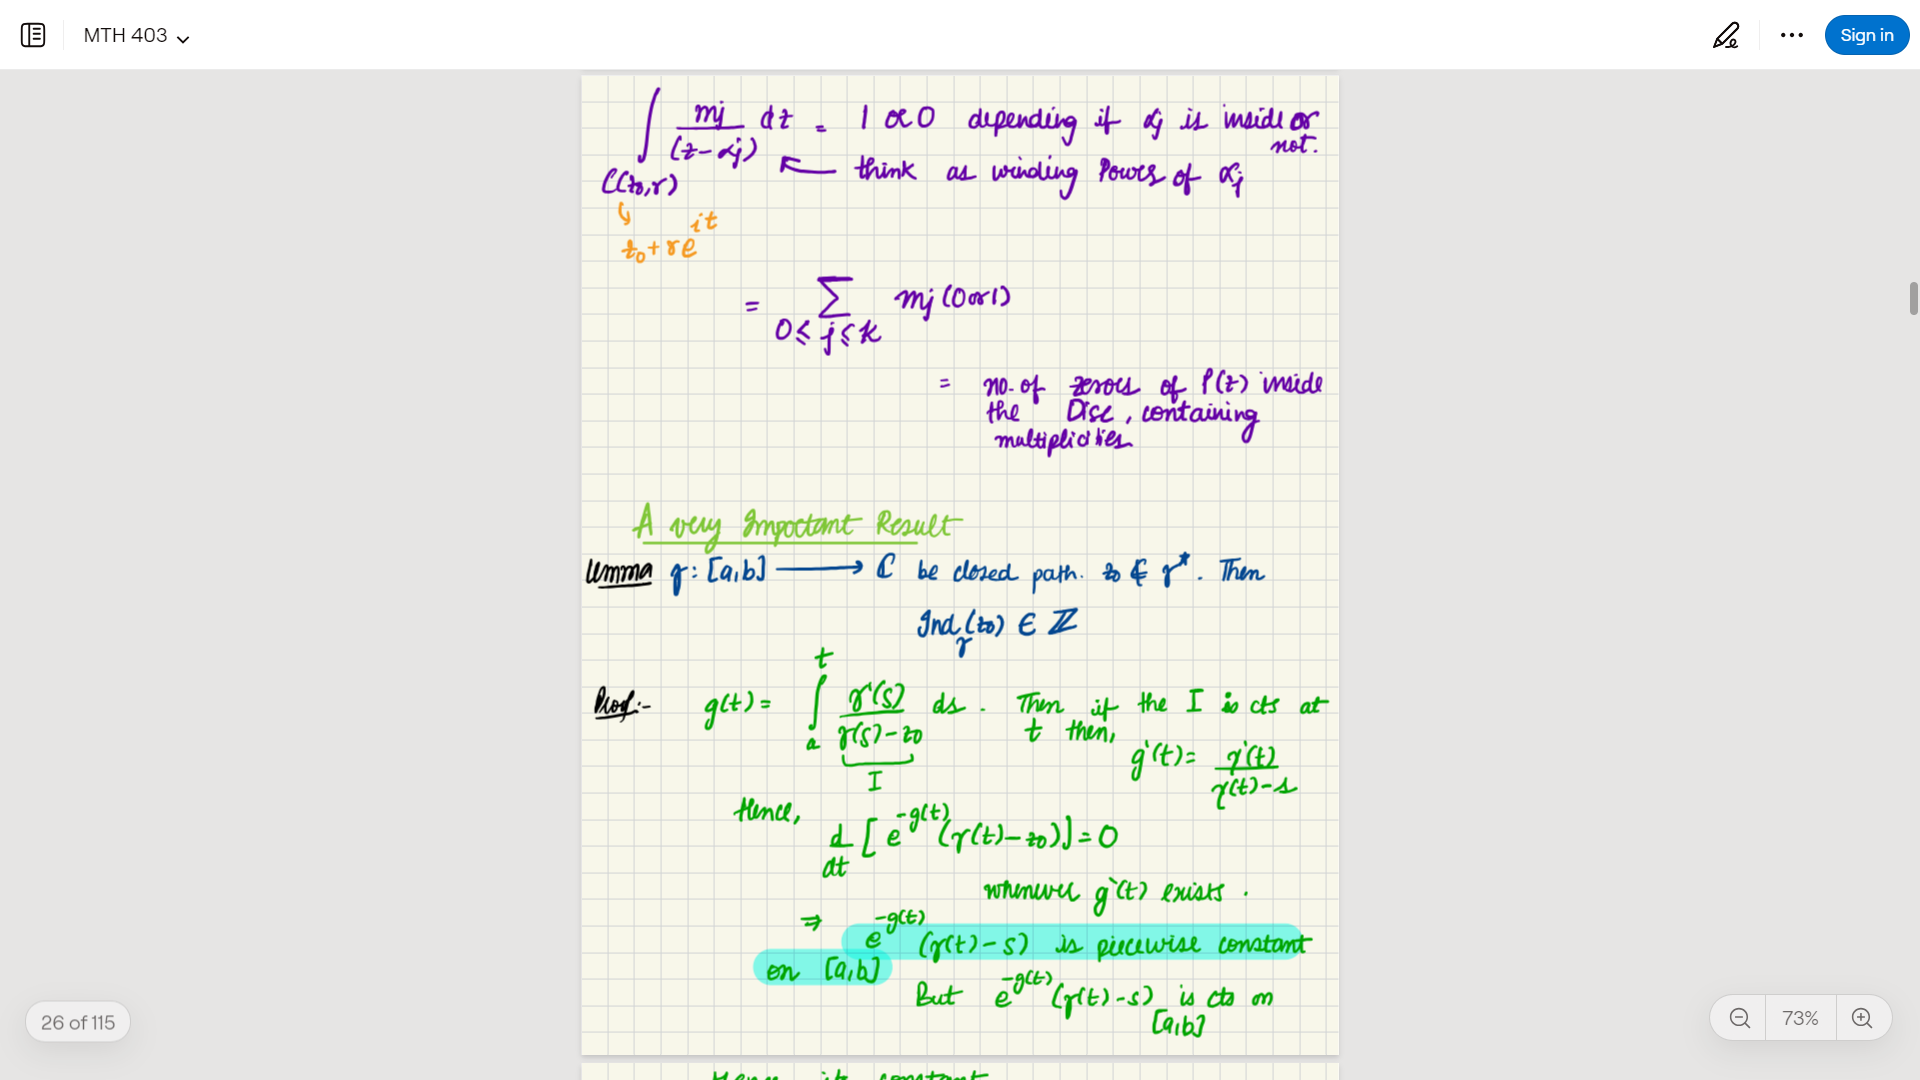 MTH 403
Sign in
∫_{C(z₀,r)} mj/(z-αj) dz = 1 or 0 depending if αj is inside or
not.
← think as winding Power of αj
z₀ + re^{it}
= Σ_{0≤j≤k} mj (0 or 1)
= no. of zeroes of P(z) inside
the Disc, containing
multiplicities
A very Important Result
Lemma γ : [a,b] ⟶ ℂ be closed path. z₀ ∉ γ*. Then
Ind_γ(z₀) ∈ ℤ
Proof:- g(t) = ∫_a^t γ'(s)/(γ(s)-z₀) ds. Then if the I is cts at
t then,
I
g'(t) = γ'(t)/(γ(t)-s)
Hence,
d/dt [e^{-g(t)} (γ(t)-z₀)] = 0
whenever g'(t) exists.
⇒ e^{-g(t)} (γ(t)-s) is piecewise constant
on [a,b]
But e^{-g(t)} (γ(t)-s) is cts on
[a,b]
26 of 115
73%
Hence it constant